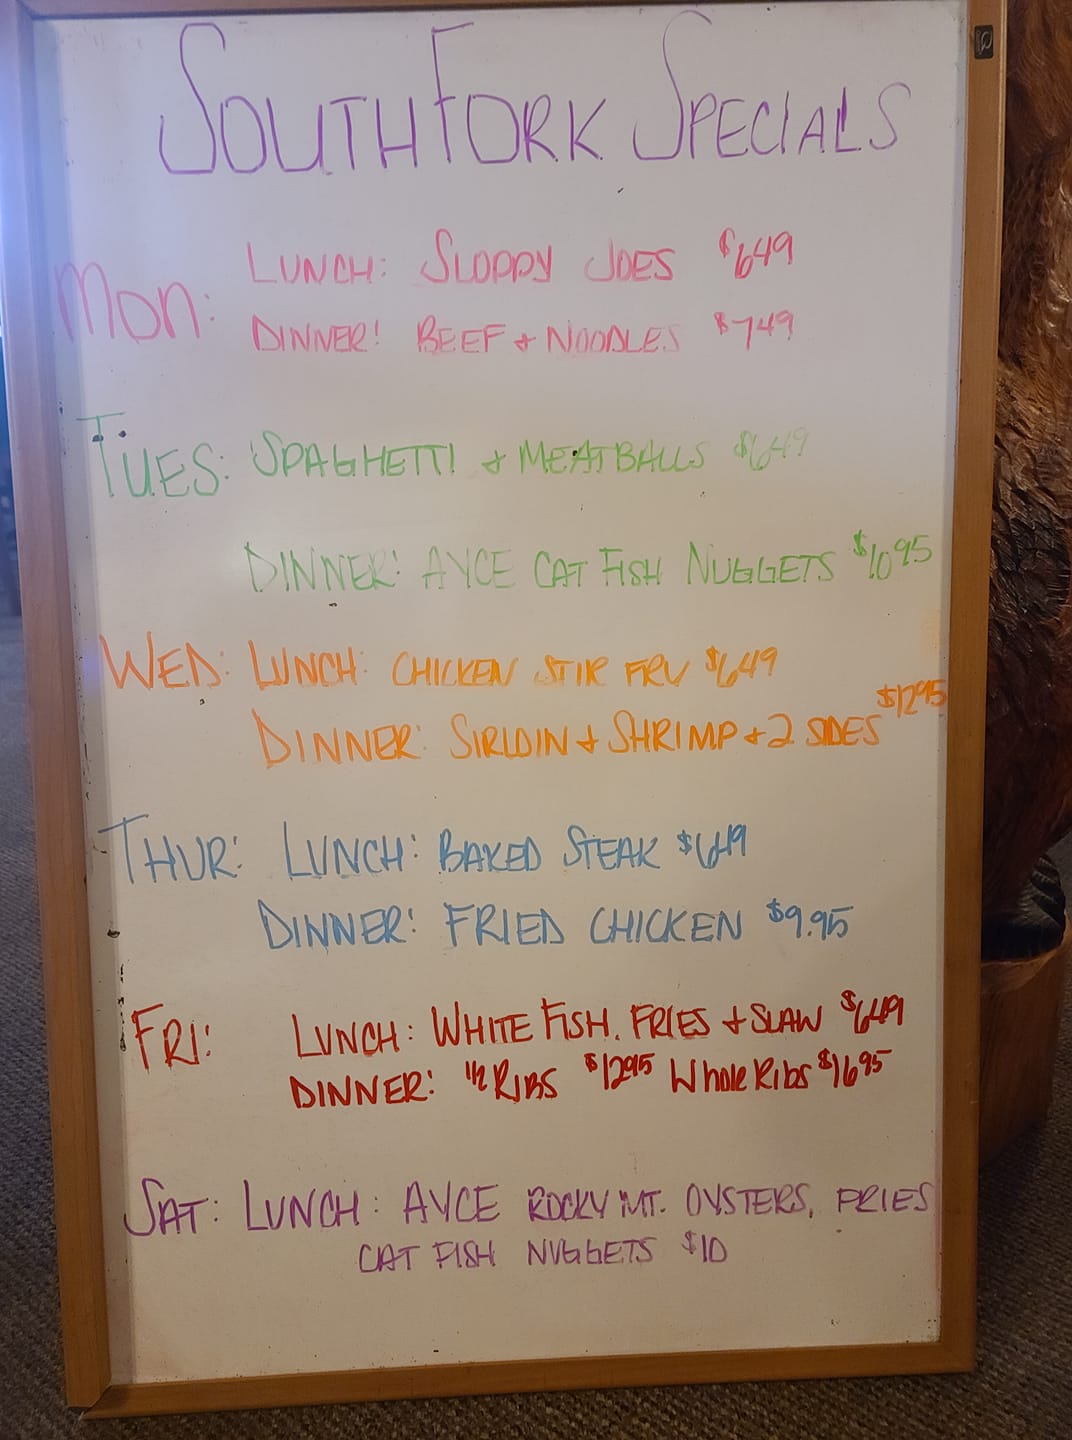 SOUTHFORK SPECIALS
MON: LUNCH: SLOPPY JOES $649
DINNER: BEEF & NOODLES $749
TUES: SPAGHETTI & MEATBALLS $649
DINNER: AYCE CAT FISH NUGGETS $1095
WED: LUNCH: CHICKEN STIR FRY $649
DINNER: SIRLOIN & SHRIMP & 2 SIDES $1295
THUR: LUNCH: BAKED STEAK $649
DINNER: FRIED CHICKEN $9.95
FRI: LUNCH: WHITE FISH. FRIES & SLAW $649
DINNER: 1/2 RIBS $1295 WHOLE RIBS $1695
SAT: LUNCH: AYCE ROCKY MT. OYSTERS, FRIES
CAT FISH NUGGETS $10